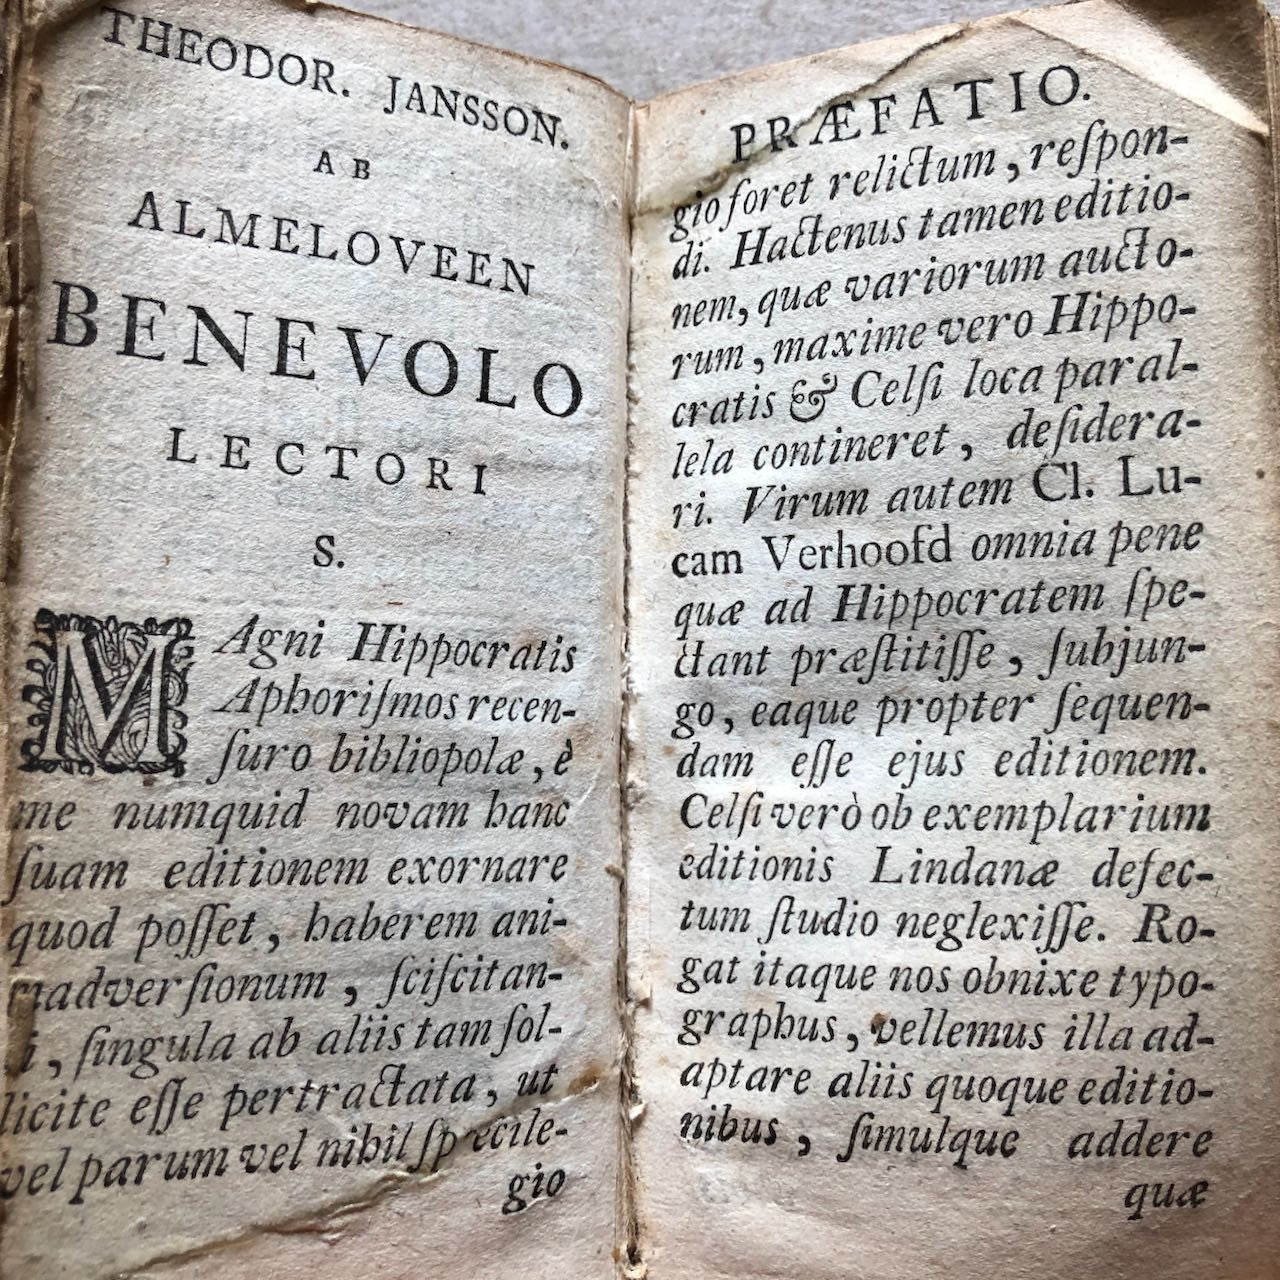 THEODOR. JANSSON.
AB
ALMELOVEEN
BENEVOLO
LECTORI
S.
MAgni Hippocratis
Aphoriſmos recen-
ſuro bibliopolæ, è
me numquid novam hanc
ſuam editionem exornare
quod poſſet, haberem ani-
madverſionum, ſciſcitan-
i, ſingula ab aliis tam ſol-
licite eſſe pertractata, ut
vel parum vel nihil ſpecile-
gio
PRÆFATIO.
gio foret relictum, reſpon-
di. Hactenus tamen editio-
nem, quæ variorum aucto-
rum, maxime vero Hippo-
cratis & Celſi loca paral-
lela contineret, deſidera-
ri. Virum autem Cl. Lu-
cam Verhoofd omnia pene
quæ ad Hippocratem ſpe-
ctant præſtitiſſe, ſubjun-
go, eaque propter ſequen-
dam eſſe ejus editionem.
Celſi verò ob exemplarium
editionis Lindanæ defec-
tum ſtudio neglexiſſe. Ro-
gat itaque nos obnixe typo-
graphus, vellemus illa ad-
aptare aliis quoque editio-
nibus, ſimulque addere
quæ